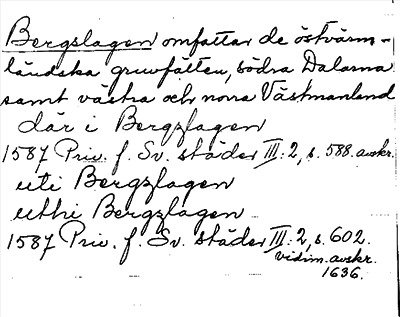 Bergslagen omfattar de östvärm-
ländska gruvfälten, södra Dalarna
samt västra och norra Västmanland
där i Bergzlagen
1587 Priv. f. Sv. städer III:2, s. 588. avskr.
uti Bergzlagen
uthi Bergzlagen
1587 Priv. f. Sv. städer III:2, s. 602.
vidim. avskr.
1636.